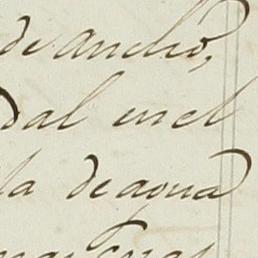 de ancho,
dal en el
la de agua